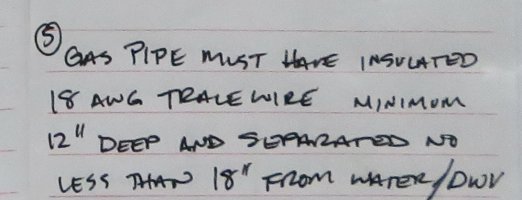 ⑤ GAS PIPE MUST HAVE INSULATED
18 AWG TRACE WIRE MINIMUM
12" DEEP AND SEPARATED NO
LESS THAN 18" FROM WATER/DWV